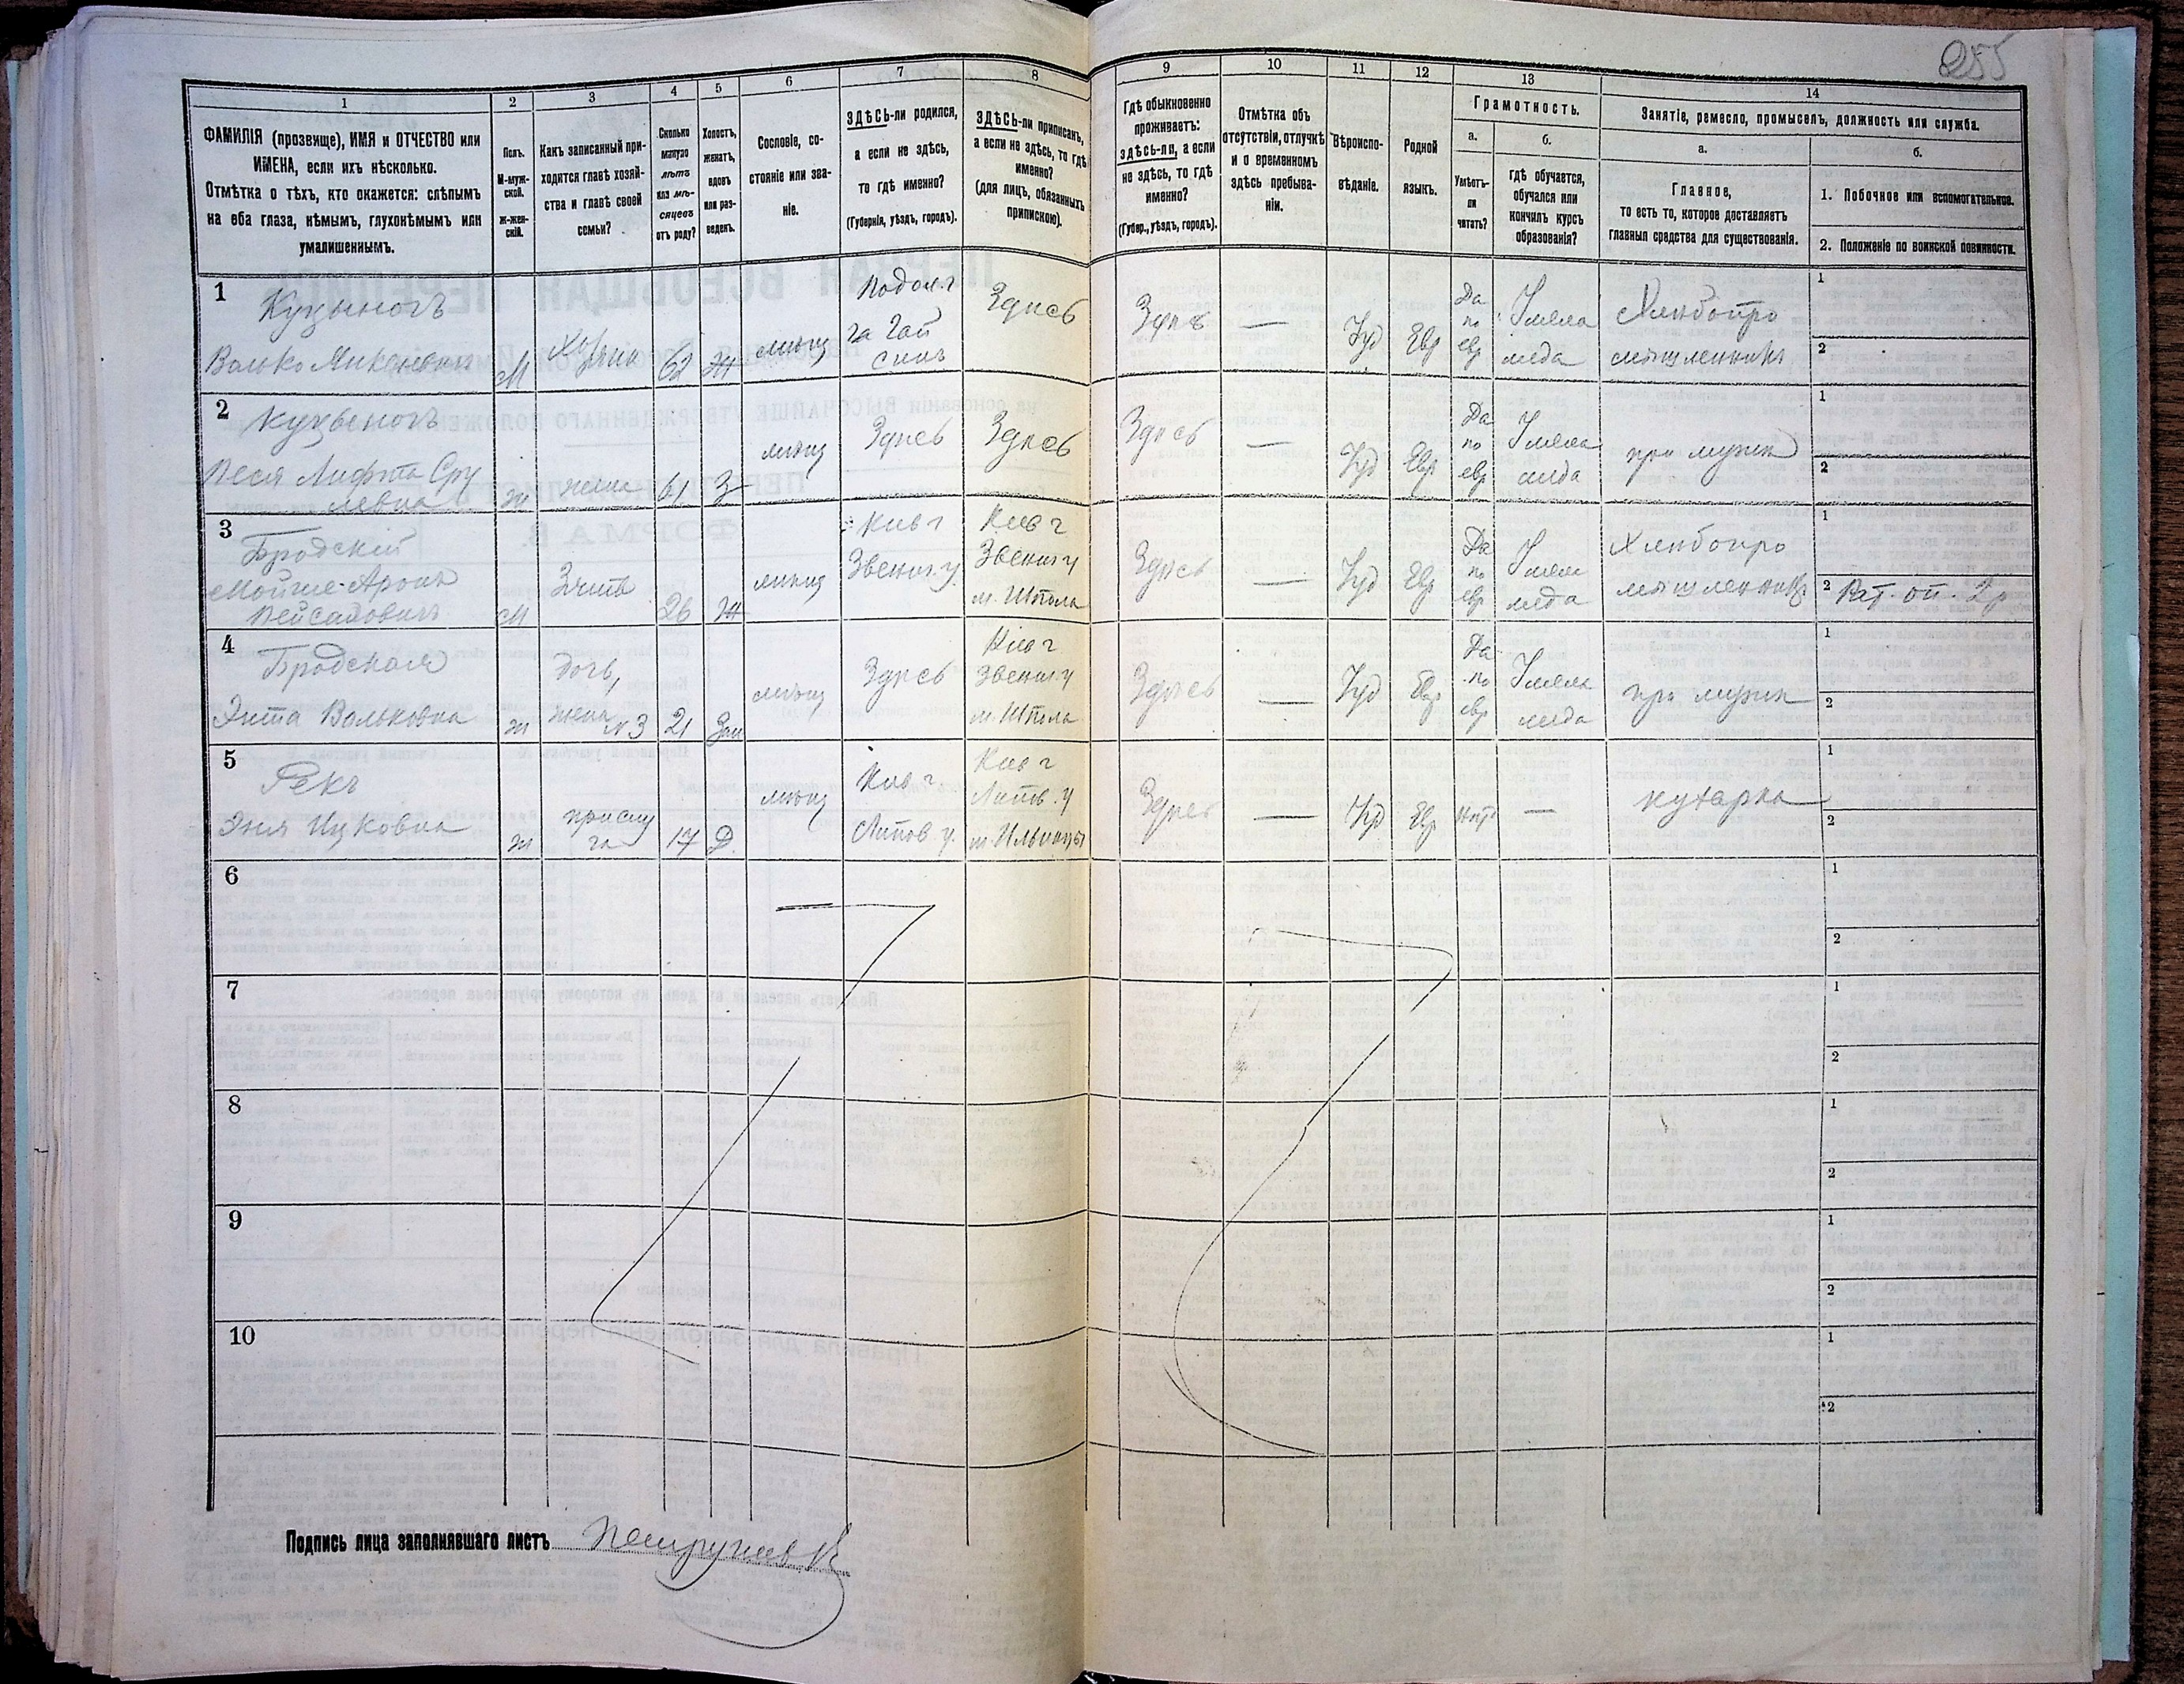 255
1 2 3 4 5 6 7 8 9 10 11 12 13 14
ФАМИЛІЯ (прозвище), ИМЯ и ОТЧЕСТВО или
ИМЕНА, если ихъ нѣсколько.
Отмѣтка о тѣхъ, кто окажется: слѣпымъ
на оба глаза, нѣмымъ, глухонѣмымъ или
умалишеннымъ.
Полъ.
М-муж-
ской.
Ж-жен-
скій.
Какъ записанный при-
ходится главѣ хозяй-
ства и главѣ своей
семьи?
Сколько
минуло
лѣтъ
или мѣ-
сяцевъ
отъ роду?
Холостъ,
женатъ,
вдовъ
или раз-
веденъ.
Сословіе, со-
стояніе или зва-
ніе.
ЗДѢСЬ-ли родился,
а если не здѣсь,
то гдѣ именно?
(Губернія, уѣздъ, городъ).
ЗДѢСЬ-ли приписанъ,
а если не здѣсь, то гдѣ
именно?
(для лицъ, обязанныхъ
припискою).
Гдѣ обыкновенно
проживаетъ:
здѣсь-ли, а если
не здѣсь, то гдѣ
именно?
(Губер., уѣздъ, городъ).
Отмѣтка объ
отсутствіи, отлучкѣ
и о временномъ
здѣсь пребыва-
ніи.
Вѣроиспо-
вѣданіе.
Родной
языкъ.
Грамотность.
а.
Умѣетъ-
ли
читать?
б.
гдѣ обучается,
обучался или
кончилъ курсъ
образованія?
Занятіе, ремесло, промыселъ, должность или служба.
а.
Главное,
то есть то, которое доставляетъ
главныя средства для существованія.
б.
1. Побочное или вспомогательное.
2. Положеніе по воинской повинности.
1
Куцыногъ
Волько
М
Хозяинъ
62
Ж
мѣщ
Подол. г
Гай
синъ
Здѣсь
Здѣсь
—
Іуд
Евр
Да
по
евр
У мела
меда
Хлѣбопро
мышленникъ
1
2
2
Куцыногъ
Песя Сру
левна
ж
жена
61
З
мѣщ
Здѣсь
Здѣсь
Здѣсь
—
Іуд
Евр
Да
по
евр
У мела
меда
при мужѣ
1
2
3
Бродскій
Мойше-Аронъ
Пейсаховичъ
М
Зять
26
Ж
мѣщ
Кіев г
Звениг. у.
Кіев г
Звениг у
м. Шпола
Здѣсь
—
Іуд
Евр
Да
по
евр
У мела
меда
Хлѣбопро
мышленникъ
1
2 Рат. оп. 2 р
4
Бродская
Энта Вольковна
ж
дочь,
жена №3
21
Зам
мѣщ
Здѣсь
Кіев г
Звениг у
м. Шпола
Здѣсь
—
Іуд
Евр
Да
по
евр
У мела
меда
при мужѣ
1
2
5
Рекъ
Эня Ицковна
ж
прислу
га
17
Д.
мѣщ
Кіев г.
Липов. у.
Кіев г
Липов. у
м. Ильинцы
Здѣсь
—
Іуд
Евр
Нѣтъ
—
кухарка
1
2
6
1
2
7
1
2
8
1
2
9
1
2
10
1
2
Подпись лица заполнявшаго листъ